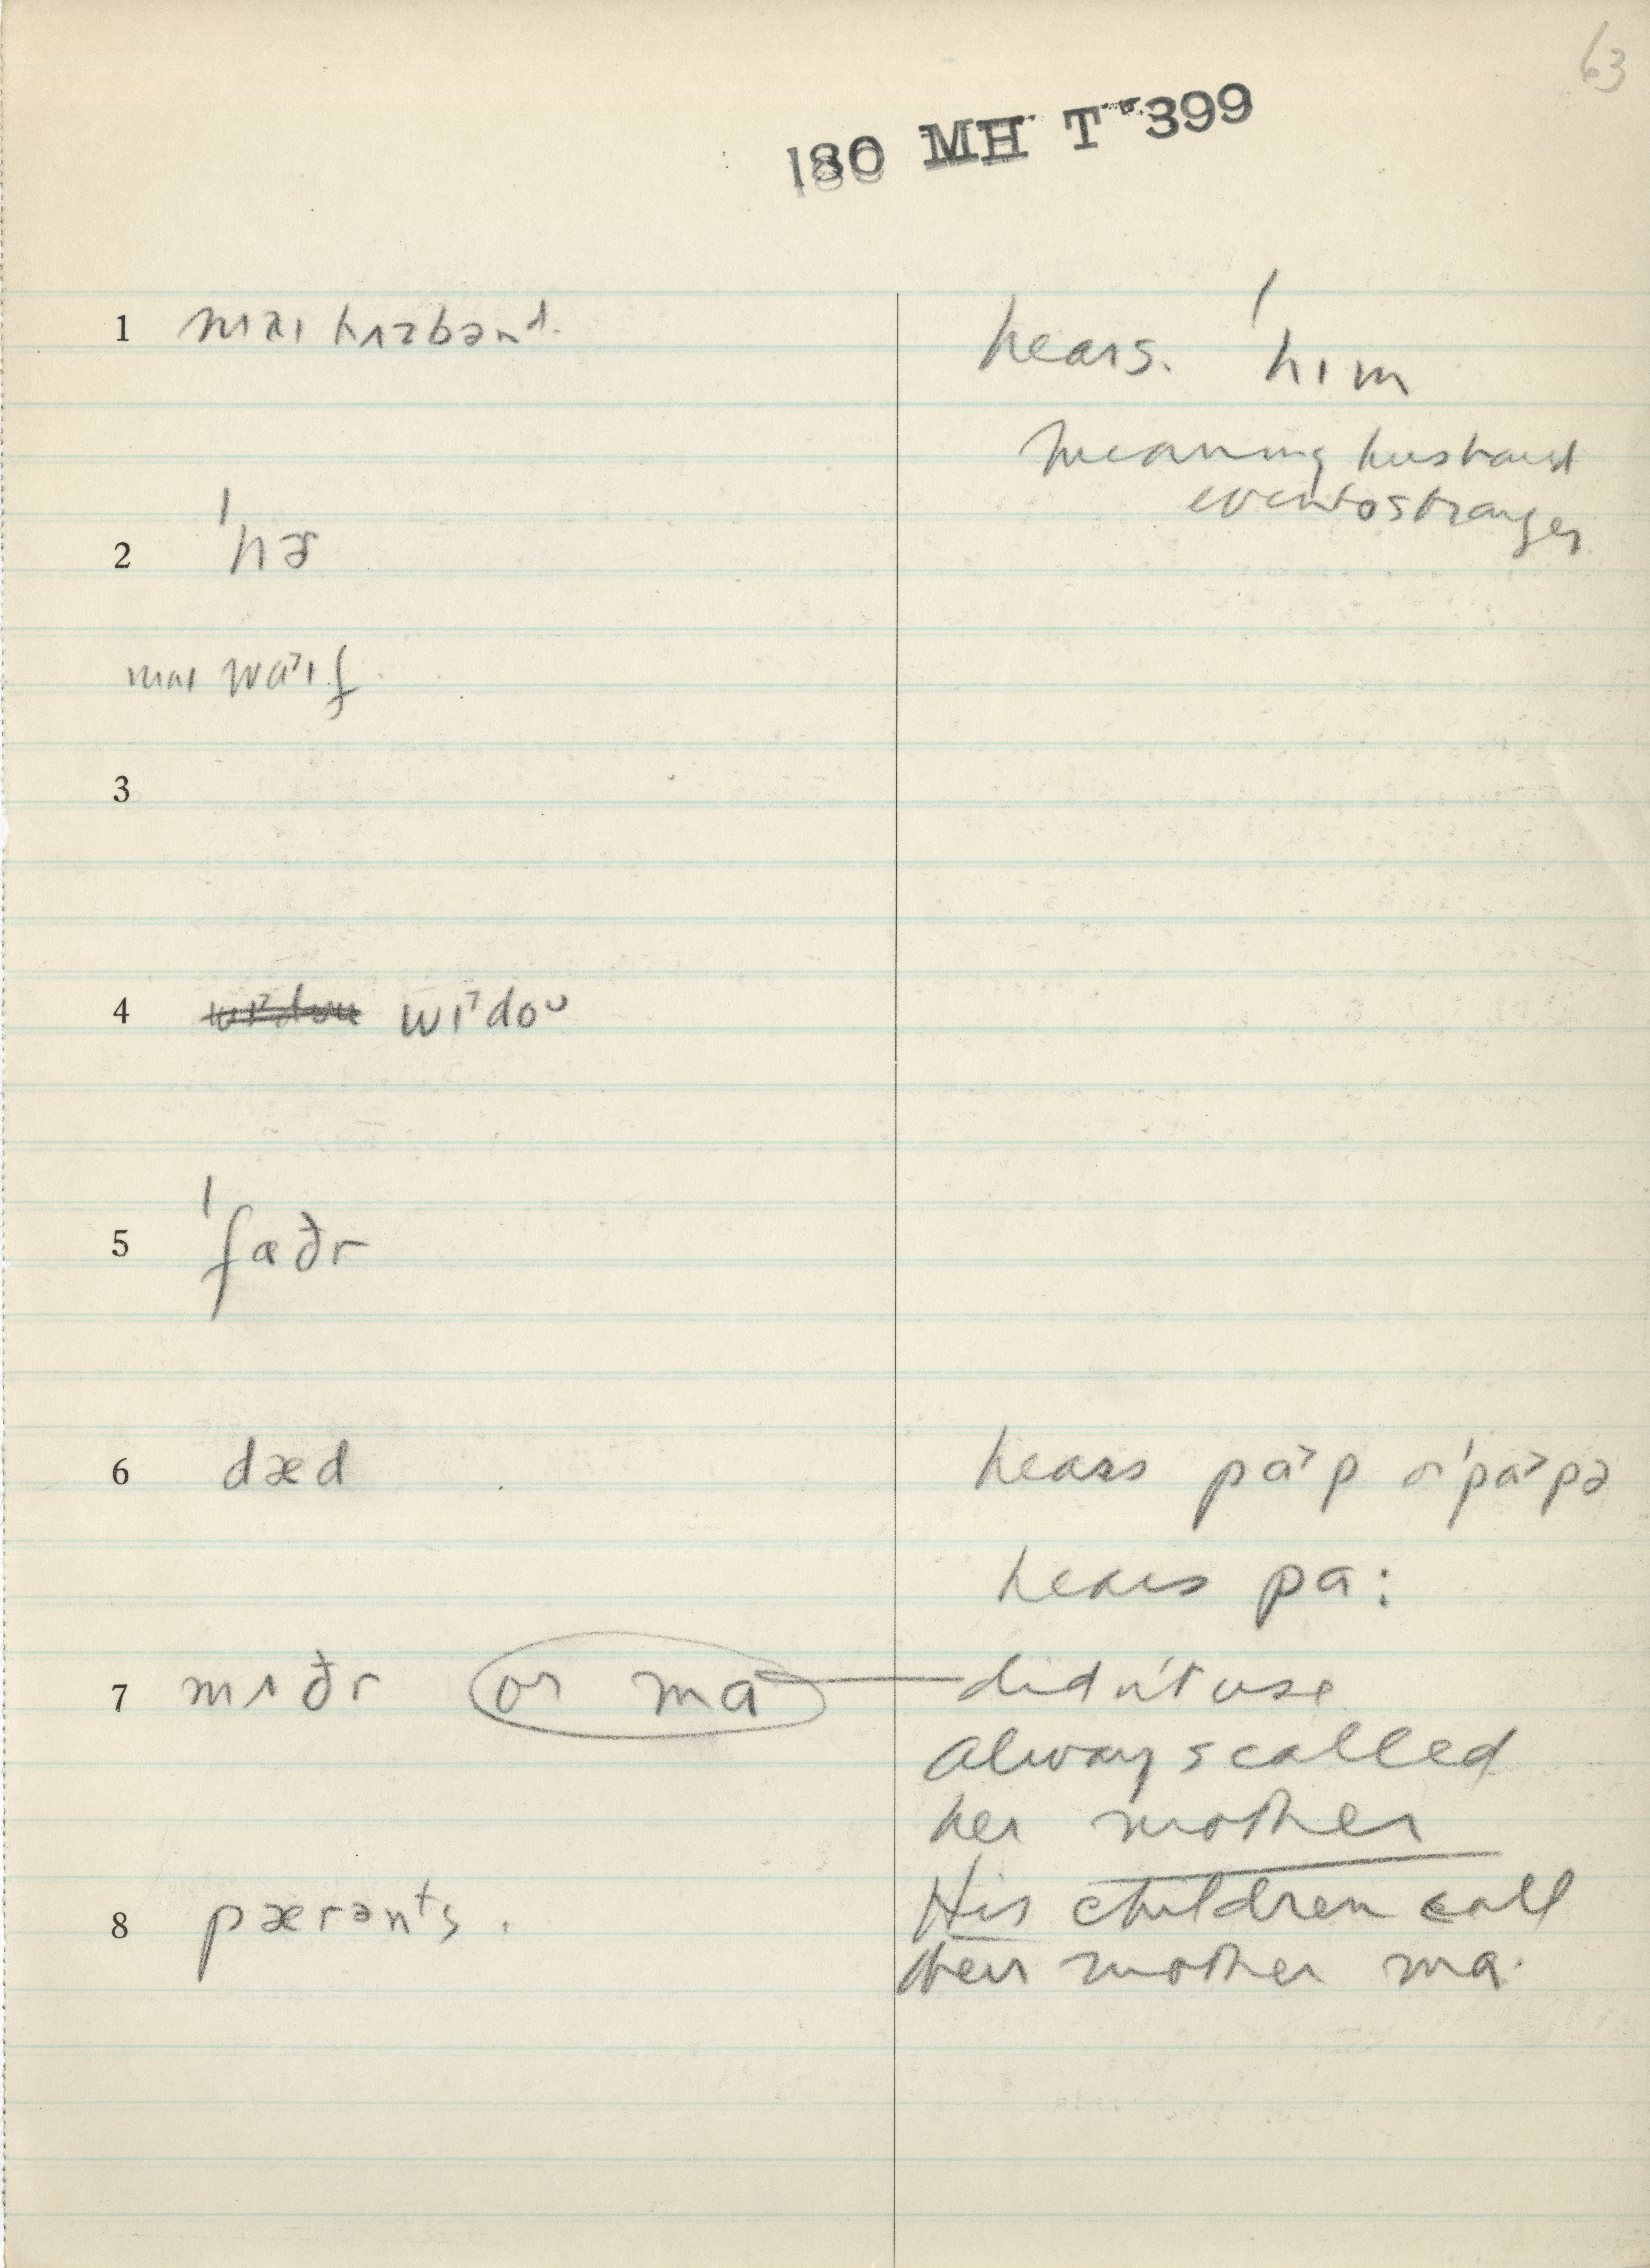 63
180 MH T 399
1 maɪ hʌzbənᵈ.
hears. ˈhɪm
meaning husband
even to stranger
2 ˈhɚ
maɪ wa˃ɪf
3
4 wɪ˃doᴜ
5 ˈfaðr
6 dæd
hears pa˃p or ˈpa˃pə
hears pa:
7 mʌðr or ma
didn't use
always called
her mother
8 pærənᵗs.
His children call
their mother ma.